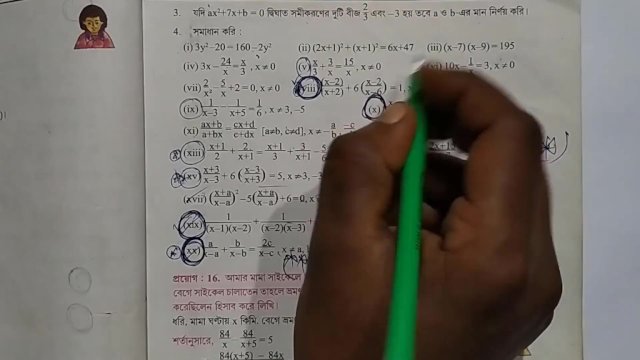 3. যদি ax²+7x+b = 0 দ্বিঘাত সমীকরণের দুটি বীজ 2/3 এবং −3 হয় তবে a ও b-এর মান নির্ণয় করি।
4. সমাধান করি :
(i) 3y²−20 = 160−2y² (ii) (2x+1)² + (x+1)² = 6x+47 (iii) (x−7) (x−9) = 195
(iv) 3x− 24/x = x/3, x≠0 (v) x/3 + 3/x = 15/x, x≠0 (vi) 10x− 1/x = 3, x≠0
(vii) 2/x² − 5/x +2 = 0, x≠0 (viii) (x−2)/(x+2) + 6 (x−2)/(x−6) = 1, x
(ix) 1/(x−3) − 1/(x+5) = 1/6, x≠3, −5 (x)
(xi) (ax+b)/(a+bx) = (cx+d)/(c+dx) [a≠b, c≠d], x≠ −
(xiii) (x+1)/2 + 2/(x+1) = (x+1)/3 + 3/(x+1) −
(xv) (x+3)/(x−3) + 6 (x−3)/(x+3) = 5, x≠3,
(xvii) ((x+a)/(x−a))² −5 ((x+a)/(x−a)) +6 = 0,
(xix) 1/((x−1)(x−2)) + 1/((x−2)(x−3)) +
(xx) a/(x−a) + b/(x−b) = 2c/(x−c), x ≠ a,
প্রয়োগ : 16. আমার মামা সাইকেলে
বেগে সাইকেল চালাতেন তাহলে ভ্রমণ
করেছিলেন হিসাব করে লিখি।
ধরি, মামা ঘণ্টায় x কিমি. বেগে ভ্রমণ
শর্তানুসারে, 84/x − 84/(x+5) = 5
84(x+5) − 84x